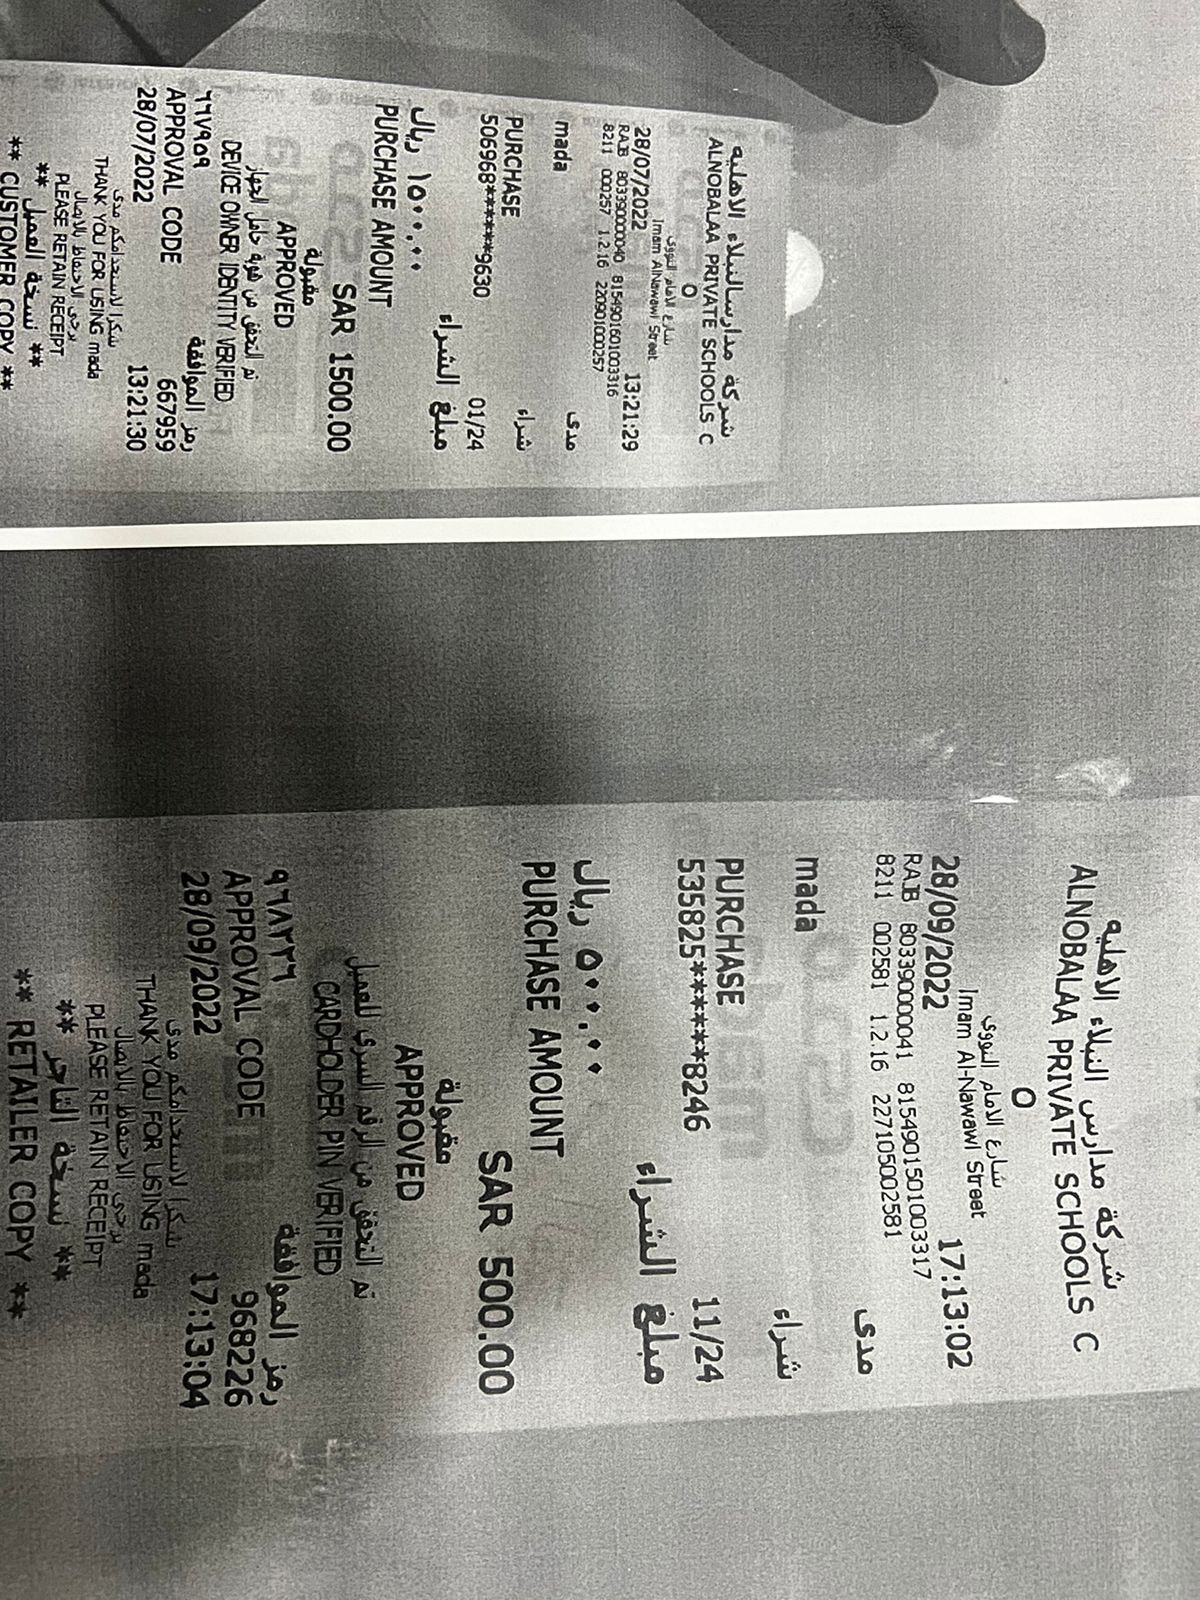 شركة مدارسالنبلاء الاهليه
ALNOBALAA PRIVATE SCHOOLS C
O
شارع الامام النووي
Imam AlNawawi Street
28/07/2022 13:21:29
RAJB 80339000040 815490160100 3316
8211 000257 1.2.16 220901000257
mada مدى
PURCHASE شراء
506968******9630 01/24
مبلغ الشراء
١٥٠٠.٠٠ ريال
PURCHASE AMOUNT
SAR 1500.00
مقبولة
APPROVED
تم التحقق من هوية حامل الجهاز
DEVICE OWNER IDENTITY VERIFIED
٦٦٧٩٥٩ رمز الموافقة
APPROVAL CODE 667959
28/07/2022 13:21:30
شكرا لاستخدامكم مدى
THANK YOU FOR USING mada
يرجى الاحتفاظ بالايصال
PLEASE RETAIN RECEIPT
** نسخة العميل **
** CUSTOMER COPY **
شركة مدارس النبلاء الاهليه
ALNOBALAA PRIVATE SCHOOLS C
O
شارع الامام النووي
Imam Al-Nawawi Street
28/09/2022 17:13:02
RAJB 80339000041 815490150100 3317
8211 002581 1.2.16 227105002581
mada مدى
PURCHASE شراء
535825******8246 11/24
مبلغ الشراء
٥٠٠.٠٠ ريال
PURCHASE AMOUNT
SAR 500.00
مقبولة
APPROVED
تم التحقق من الرقم السري للعميل
CARDHOLDER PIN VERIFIED
٩٦٨٢٢٦ رمز الموافقة
APPROVAL CODE 968226
28/09/2022 17:13:04
شكرا لاستخدامكم مدى
THANK YOU FOR USING mada
يرجى الاحتفاظ بالايصال
PLEASE RETAIN RECEIPT
** نسخة التاجر **
** RETAILER COPY **